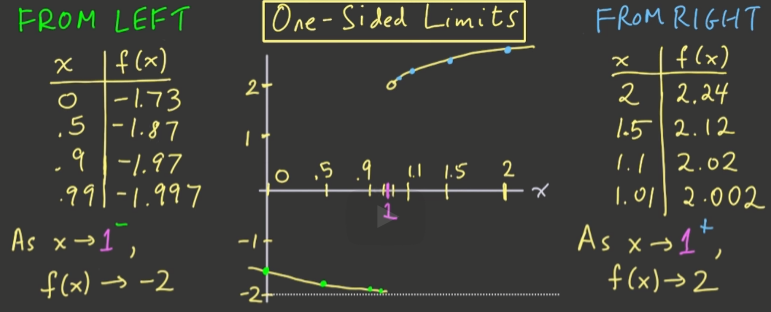 FROM LEFT
x f(x)
0 -1.73
.5 -1.87
.9 -1.97
.99 -1.997
As x→1⁻,
f(x)→-2
One-Sided Limits
2
1
0 .5 .9 1.1 1.5 2 x
1
-1
-2
FROM RIGHT
x f(x)
2 2.24
1.5 2.12
1.1 2.02
1.01 2.002
As x→1⁺,
f(x)→2